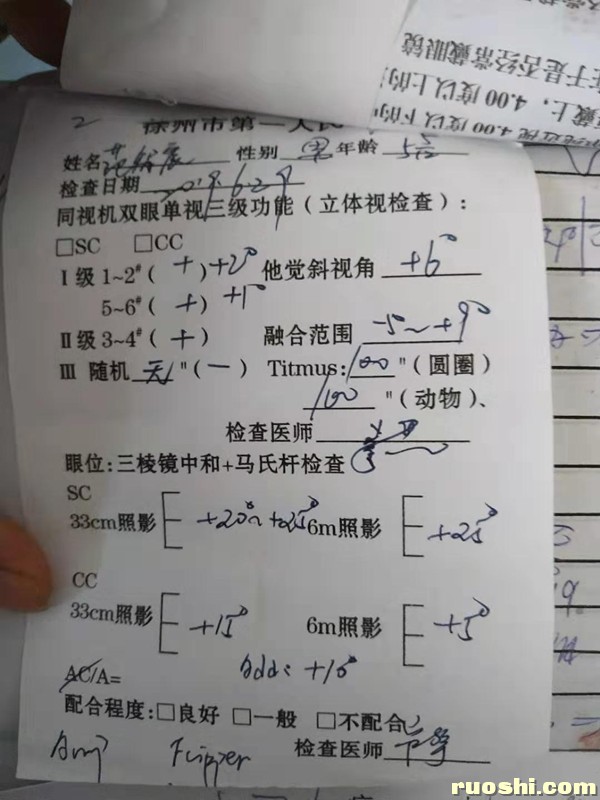 在于是否经常戴眼镜
戴上，4.00度以上的
4.00度以下的
2
徐州市第一人民
姓名 性别 男 年龄 5岁
检查日期 2019.6.29
同视机双眼单视三级功能（立体视检查）：
□SC □CC
I级 1~2#( + ) +2° 他觉斜视角 +6°
5~6#( + ) +1°
II级 3~4#( + ) 融合范围 -5°~+9°
III 随机 无 "( — ) Titmus: 100 "(圆圈)
100 "(动物)、
检查医师
眼位:三棱镜中和+马氏杆检查
SC
33cm照影 +20°~+25° 6m照影 +25°
CC
33cm照影 +15° 6m照影 +5°
add: +10°
AC/A=
配合程度:□良好 □一般 □不配合
Amp Flipper 检查医师
ruoshi.com